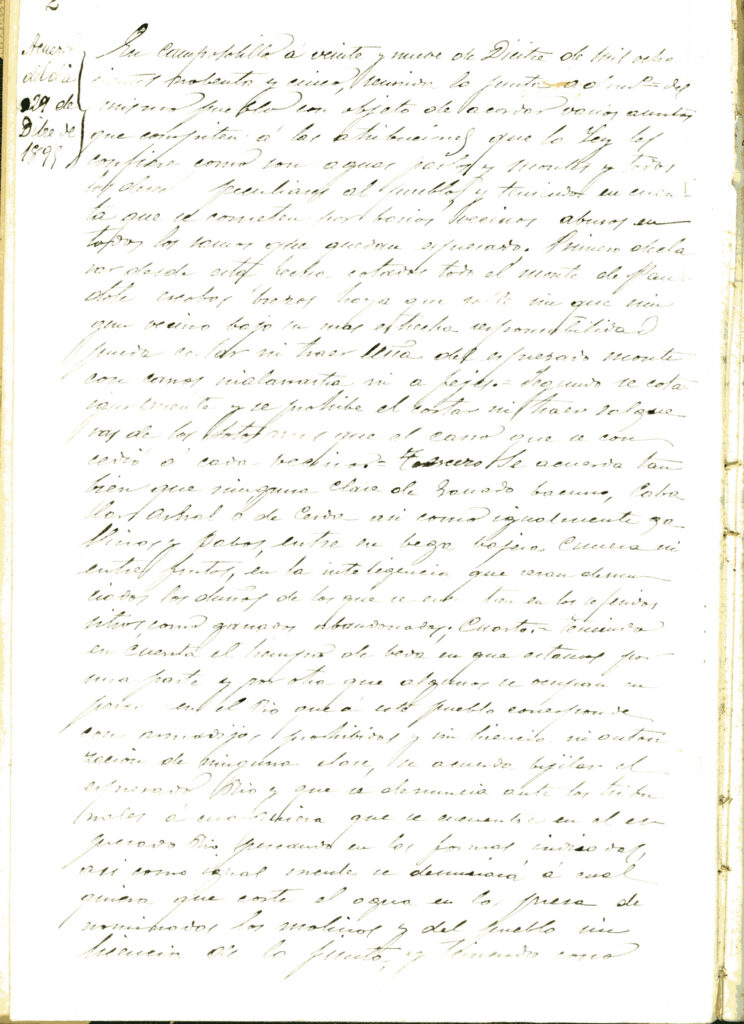 2
Acuerdo
del dia
29 de
Dbre de
1895
En campososillo á veinte y nueve de Dicbre de mil ocho
cientos nobenta y cinco, reunida la junta admva del
mismo pueblo con objeto de acordar varios asuntos
que compiten á las atribuciones que la Ley les
confiere como son aguas pastos y montes y todos
los demas peculiares al pueblo, y teniendo en cuen
ta que se cometen por barios becinos abusos en
todos los ramos que quedan espresado. Primero decla
rar desde esta fecha cotados todo el monte de
roble escobas brezos haya que sin que nin
gun vecino bajo su mas estrecha responsabilidad
pueda cortar ni traer leña del espresado monte
con carros ni a fejes.= Segundo se cota
igualmente y se prohibe el cortar ni traer salgue
ras de los sotos mas que el carro que se con
cedió á cada becino= Tercero Se acuerda tan
bien que ninguna clase de ganado bacuno, Caba
llar Asnal o de Cerda asi como igualmente ga
llinas y Pabos, entre en bega bajera Cimera ni
entre frutos, en la inteligencia que seran denun
ciados los dueños de los que se encuentren en los referidos
sitios, como ganados abandonados, Cuarto.= Teniendo
en cuenta el tiempo de beda en que estamos por
una parte y por otra que algunos se ocupan en
pescar en el Rio que á este pueblo corresponde
con armadijos prohibidos y sin licencia ni autori
zación de ninguna clase, se acuerda bijilar el
espresado Rio y que se denuncia ante los tribu
nales á cualquiera que se encuentre en el es
presado Rio pescando en las formas indicadas,
asi como igual mente se denunciará á cual
quiera que corte el agua en la presa de
nominados los molinos y del pueblo sin
licencia de la Junta, y teniendo